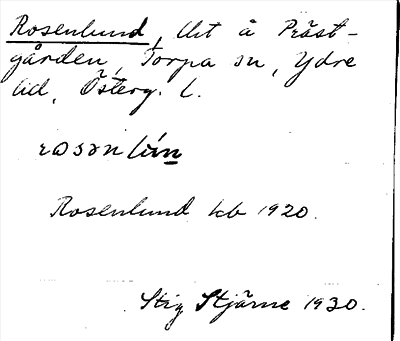 Rosenlund, lht å Präst-
gården, Torpa sn, Ydre
hd, Österg. l.
Rosenlund kb 1920.
Stig Stjärne 1930.